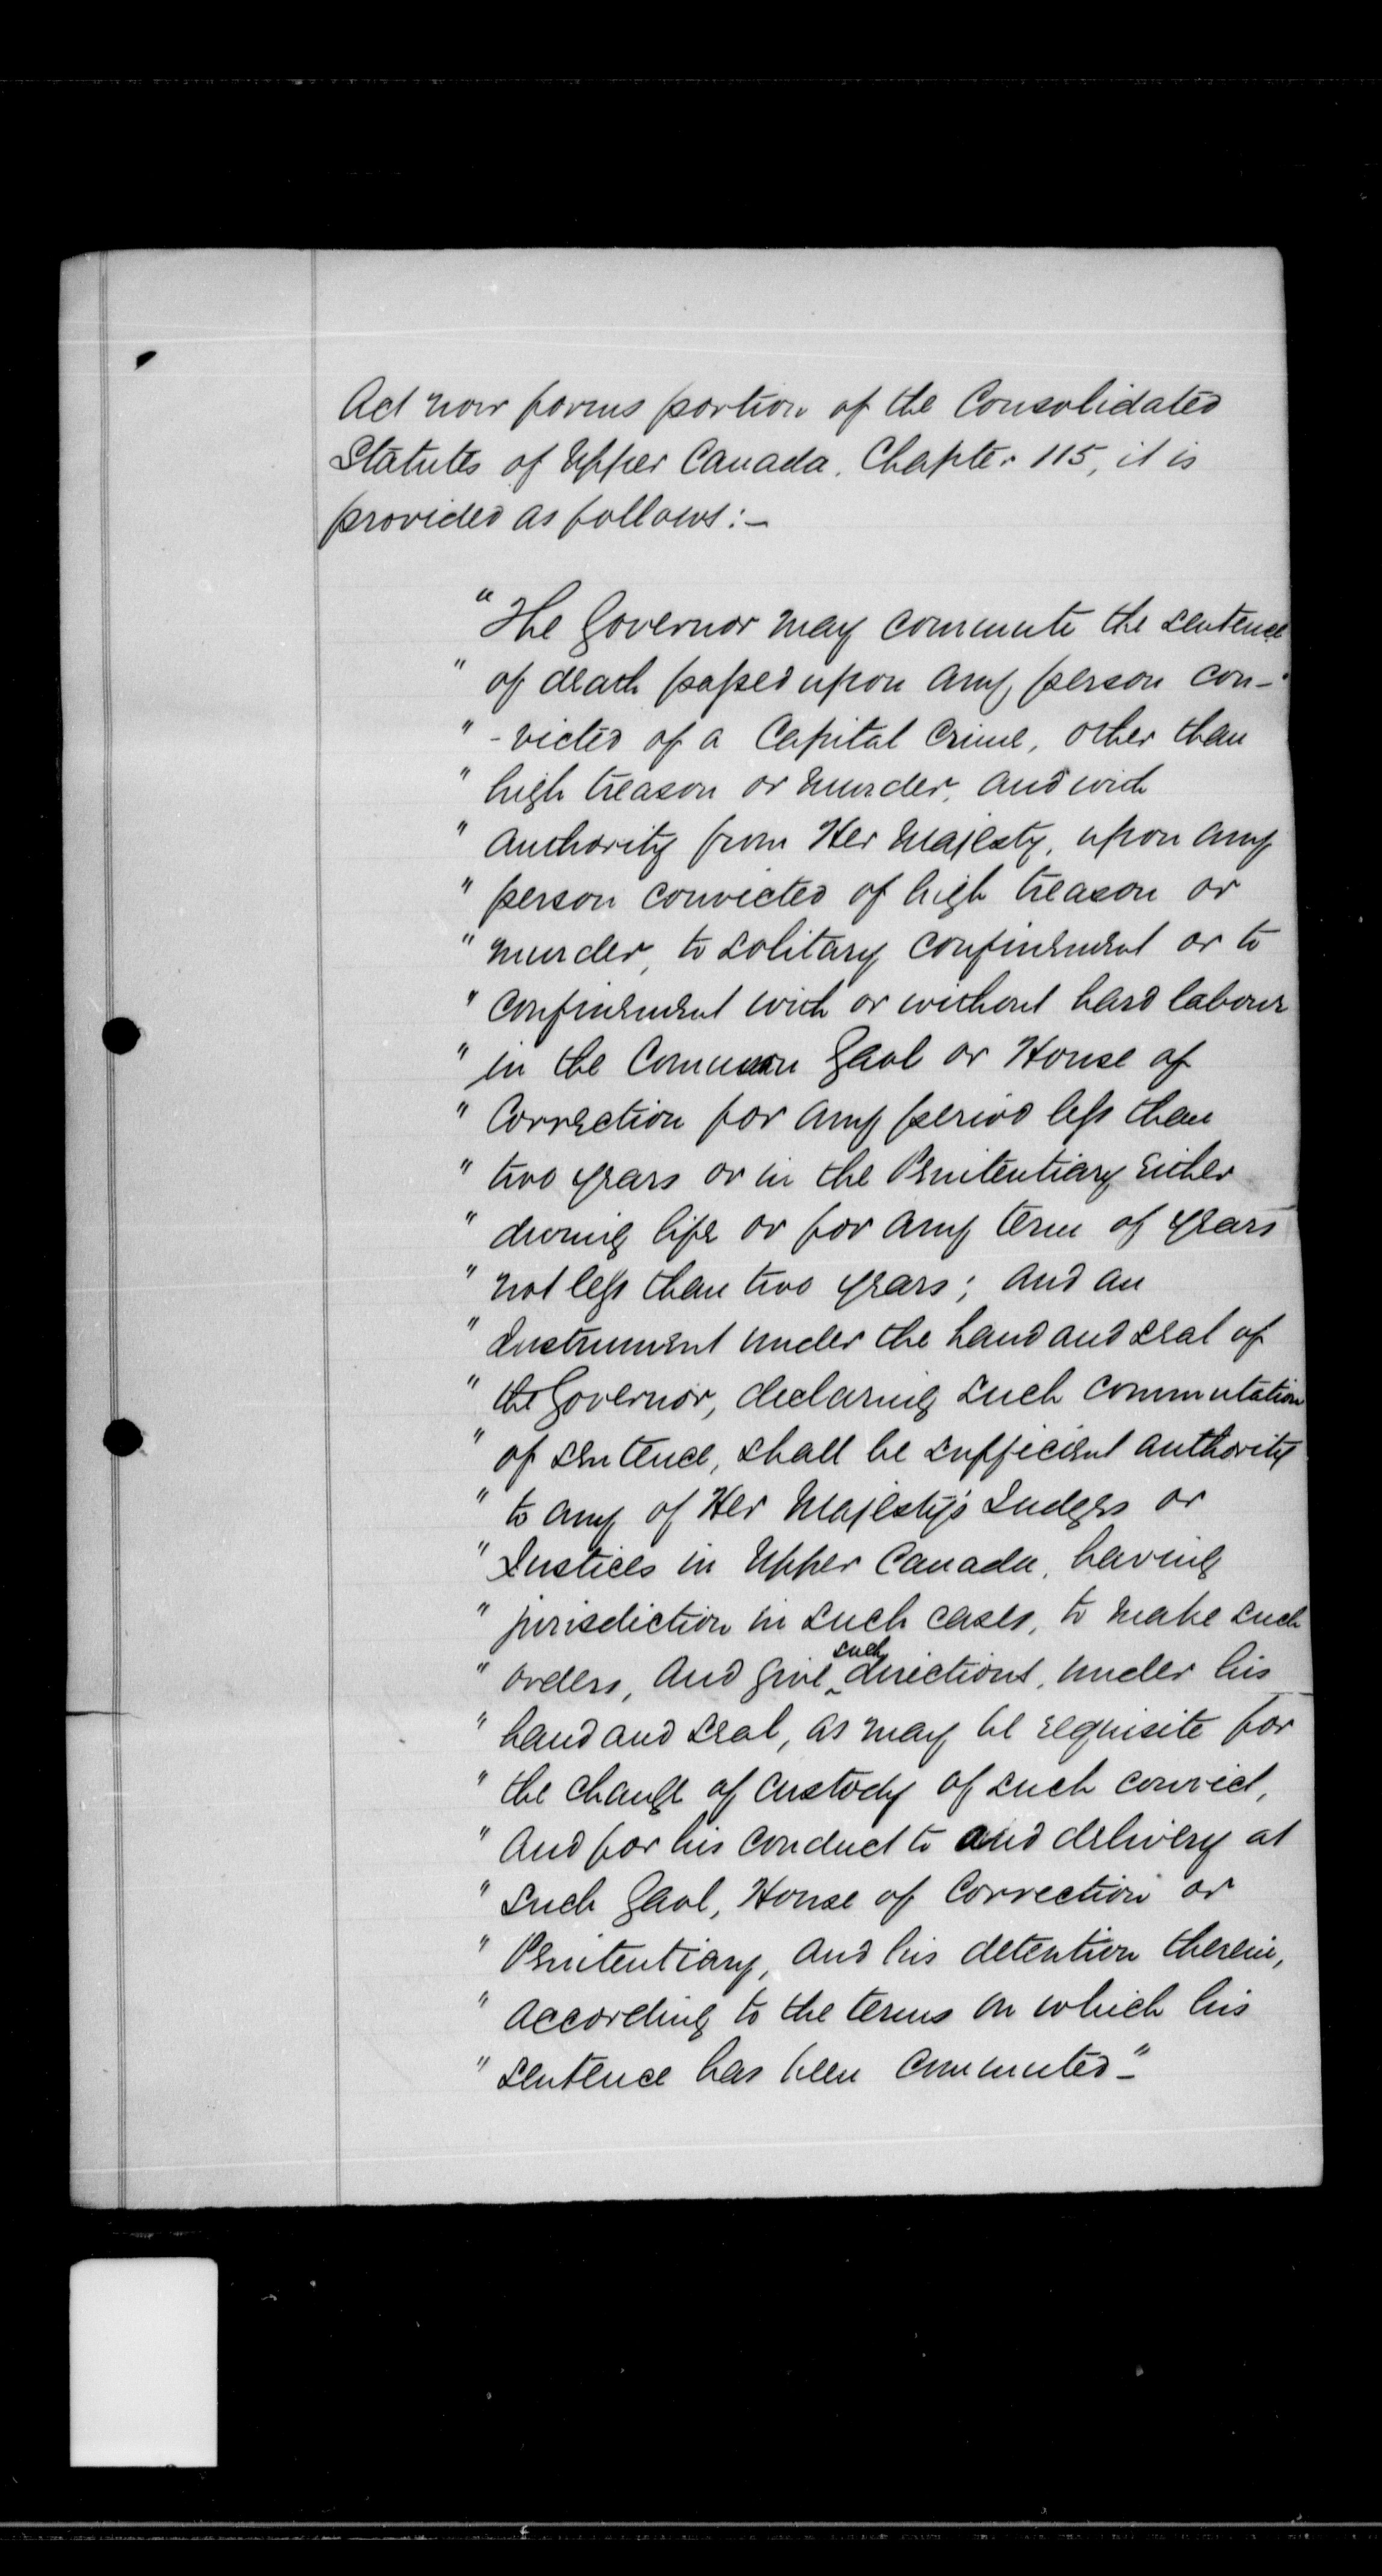 Act now forms portion of the Consolidated
Statutes of Upper Canada. Chapter 115, it is
provided as follows:-
"The Governor may commute the sentence
" of death passed upon any person con-
" -victed of a Capital Crime, other than
" high treason or murder, and with
" authority from Her Majesty, upon any
" person convicted of high treason or
" murder, to solitary confinement or to
" confinement with or without hard labour
" in the Common Gaol or House of
" Correction for any period less than
" two years or in the Penitentiary either
" during life or for any term of years
" not less than two years; and an
" Instrument under the hand and seal of
" the Governor, declaring such commutation
" of sentence, shall be sufficient authority
" to any of Her Majesty's Judges or
" Justices in Upper Canada, having
" jurisdiction in such cases, to make such
" orders, and give such directions, under his
" hand and seal, as may be requisite for
" the change of custody of such convict,
" and for his conduct to and delivery at
" such Gaol, House of Correction or
" Penitentiary, and his detention therein,
" according to the terms on which his
" sentence has been commuted-"